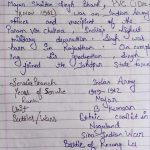 Major Shaitan Singh Bhati, PVC (1 Dec
18 Nov 1962) was an Indian Army
officer and recipient of the
Param Vir Chakra India's highest
military decoration. Singh was
born in Rajasthan. On complet
ing his graduation Singh
joined the Jodhpur State Forces
Service/Branch Indian Army
Years of Service 1949-1962
Rank Major
Unit Kumaon
Battles/Wars Ethnic conflict in
Nagaland
Sino-Indian War
Battle of Rezang La